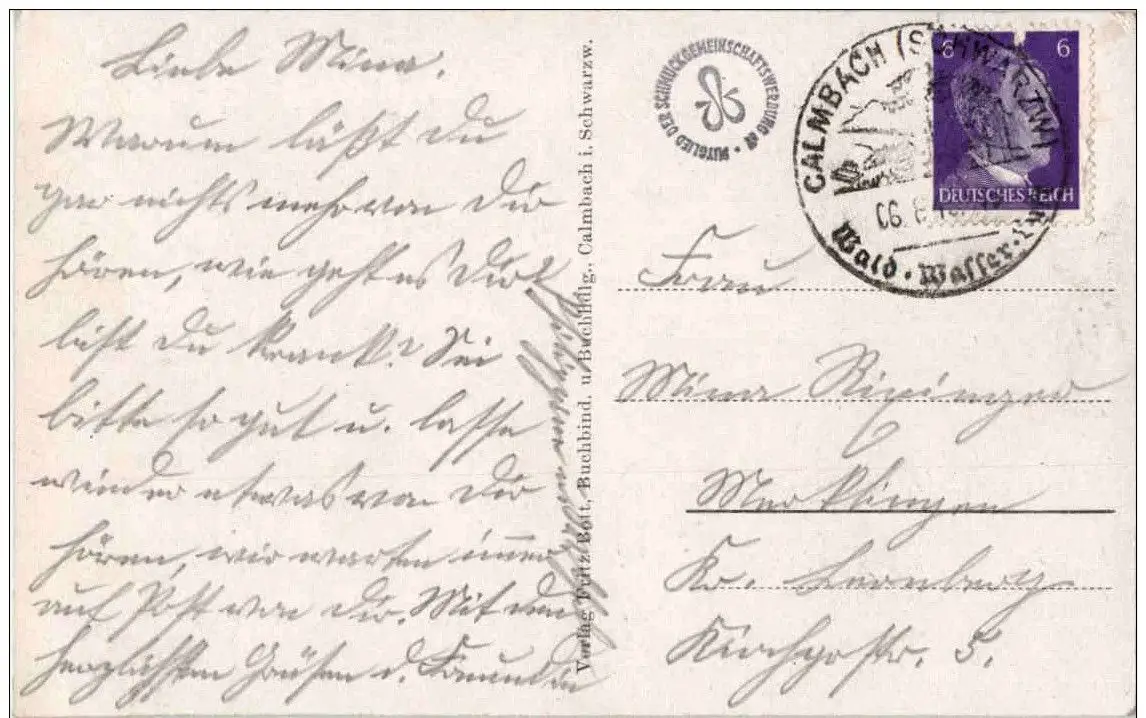 Liebe Mina.
Warum läßt Du
gar nichts mehr von Dir
hören, wie geht es Dir?
bist Du krank? Sei
bitte so gut u. lasse
wieder etwas von Dir
hören, wir warten immer
auf Post von Dir. Mit den
herzlichsten Grüßen d. Freundin
Verlag Fritz Bott, Buchbind. u. Buchhdlg., Calmbach i. Schwarzw.
MITGLIED DER SCHMUCKGEMEINSCHAFTSWERBUNG
CALMBACH (SCHWARZW)
06.
Wald · Wasser ·
6 6
DEUTSCHES REICH
Frau
Mina
Merklingen
Kr. Leonberg
Kirchgstr. 5.